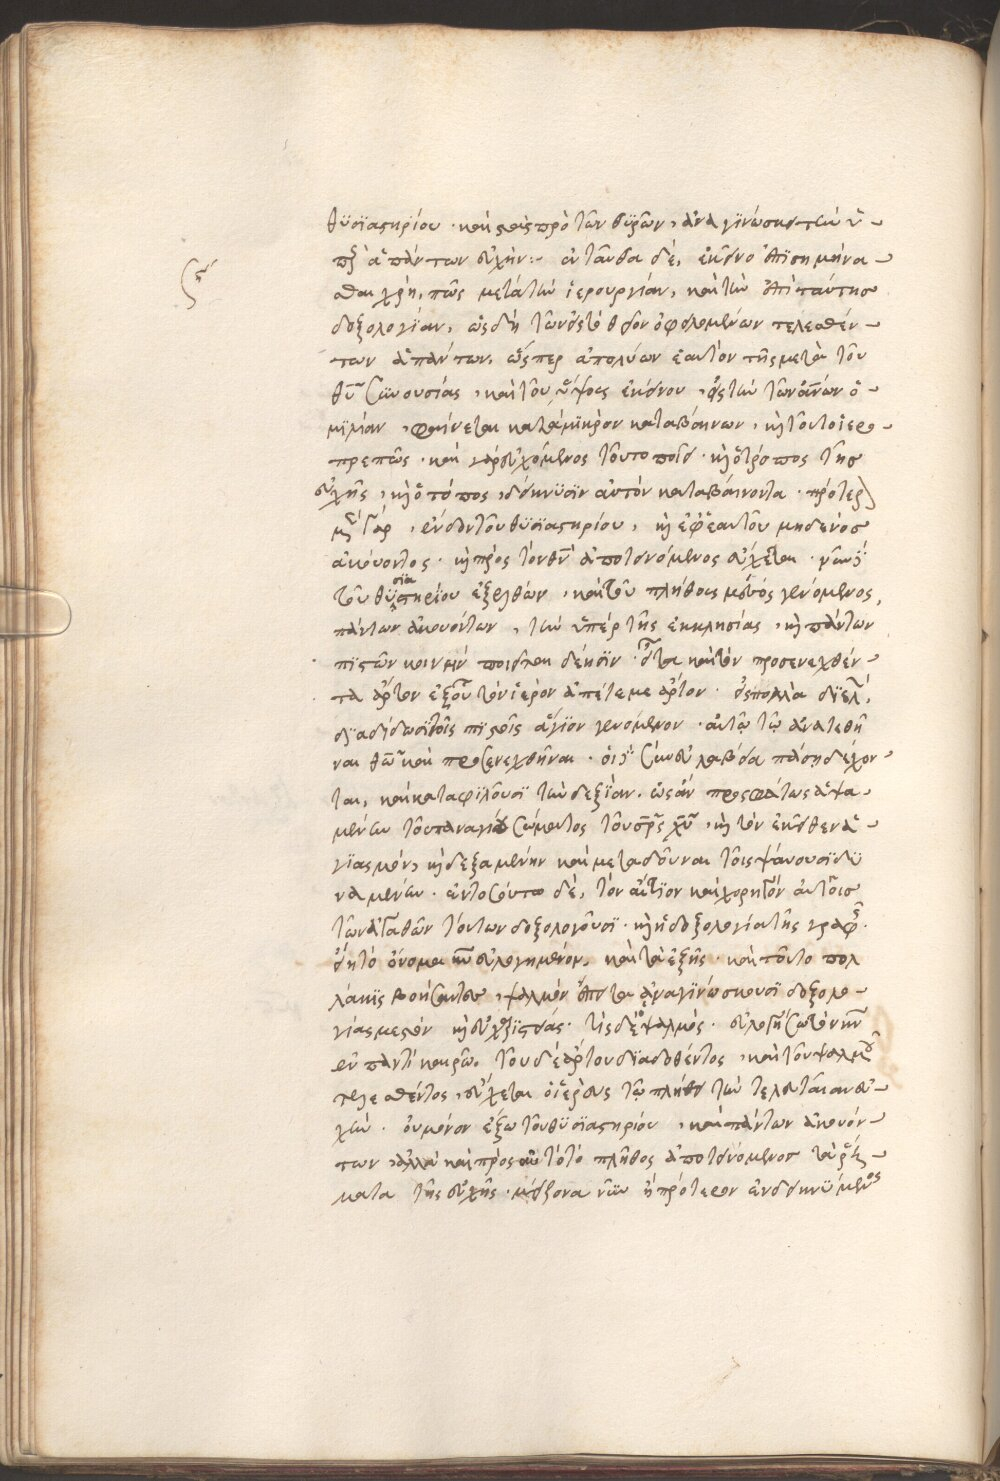 θυσιαστηρίου · καὶ στὰς πρὸ τῶν θυρῶν, ἀναγινώσκει τὴν ὑ-
πὲρ ἁπάντων εὐχήν :- ἐνταῦθα δὲ, ἐκεῖνο ἐπισημήνα-
σθαι χρὴ, πῶς μετὰ τὴν ἱερουργίαν, καὶ τὴν ἐπὶ ταύτης
δοξολογίαν, ὡς δὴ τῶν εἰς τὸ θεῖον ὀφειλομένων τελεσθέν-
των ἁπάντων, ὥσπερ ἀπολύων ἑαυτὸν τῆς μετὰ τοῦ
θῦ συνουσίας, καὶ τοῦ ὕψους ἐκείνου, εἰς τὴν τῶν ἀνῶν ὁ-
μιλίαν, φαίνεται κατὰ μικρὸν καταβαίνων, κὴ τοῦτο ἱερο-
πρεπῶς · καὶ γὰρ εὐχόμενος τοῦτο ποιεῖ · κὴ ὁ τρόπος τῆς
εὐχῆς, κὴ ὁ τόπος, δείκνυσιν αὐτὸν καταβαίνοντα · πρότερ
μὲν γὰρ, ἔνδον τοῦ θυσιαστηρίου, κὴ ἐφ' ἑαυτοῦ μηδενὸς
ἀκούοντος · κὴ πρὸς τὸν θν ἀποτεινόμενος εὔχεται · νῦν δὲ
τοῦ θυσιαστηρίου ἐξελθὼν, καὶ τοῦ πλήθους μέσος γενόμενος,
πάντων ἀκουόντων, τὴν ὑπὲρ τῆς ἐκκλησίας, κὴ πάντων
πιστῶν κοινὴν ποιεῖται δέησιν · εἶτα καὶ τὸν προσενεχθέν-
τα ἄρτον ἐξ οὗ τὸν ἱερὸν ἀπέτεμε ἄρτον · εἰς πολλὰ διελὼν,
διαδίδωσι τοῖς πιστοῖς ἅγιον γενόμενον · αὐτῷ τῷ ἀνατεθῆ
ναι θῶ καὶ προσενεχθῆναι · οἱ δὲ σὺν εὐλαβείᾳ πάσῃ δέχον-
ται, καὶ καταφιλοῦσι τὴν δεξιὰν · ὡς ἂν προσφάτως ἁψα-
μένην τοῦ παναγίου σώματος τοῦ σρς χῦ, κὴ τὸν ἐκεῖθεν ἁ-
γιασμὸν, κὴ δεξαμένην καὶ μεταδοῦναι τοῖς ψάυουσι δυ
ναμένην · ἐν τοσούτω δὲ, τὸν αἴτιον καὶ χορηγὸν αὐτοῖς
τῶν ἀγαθῶν τούτων δοξολογοῦσι · κὴ ἡ δοξολογία τῆς γραφῆς ·
εἴη τὸ ὄνομα κῦ εὐλογημένον, καὶ τὰ ἑξῆς · καὶ τοῦτο πολ
λάκις βοήσαντες, ψαλμὸν ἔπειτα ἀναγινώσκουσι δοξολο-
γίας μεστὸν κὴ εὐχαριστίας · τίς δὲ ὁ ψαλμός · εὐλογήσω τὸν κν
ἐν παντὶ καιρῶ. τοῦ δὲ ἄρτου διαδοθέντος, καὶ τοῦ ψαλμοῦ
τελεσθέντος, εὔχεται ὁ ἱερεὺς τῷ πλήθει τὴν τελευταίαν εὐ-
χὴν · οὐ μόνον ἔξω τοῦ θυσιαστηρίου, καὶ πάντων ἀκουόν-
των, ἀλλὰ καὶ πρὸς αὐτὸ τὸ πλῆθος ἀποτεινόμενος τὰ ῥή-
ματα τῆς εὐχῆς · μείζονα νῦν ἢ πρότερον ἐνδεικνύμενος